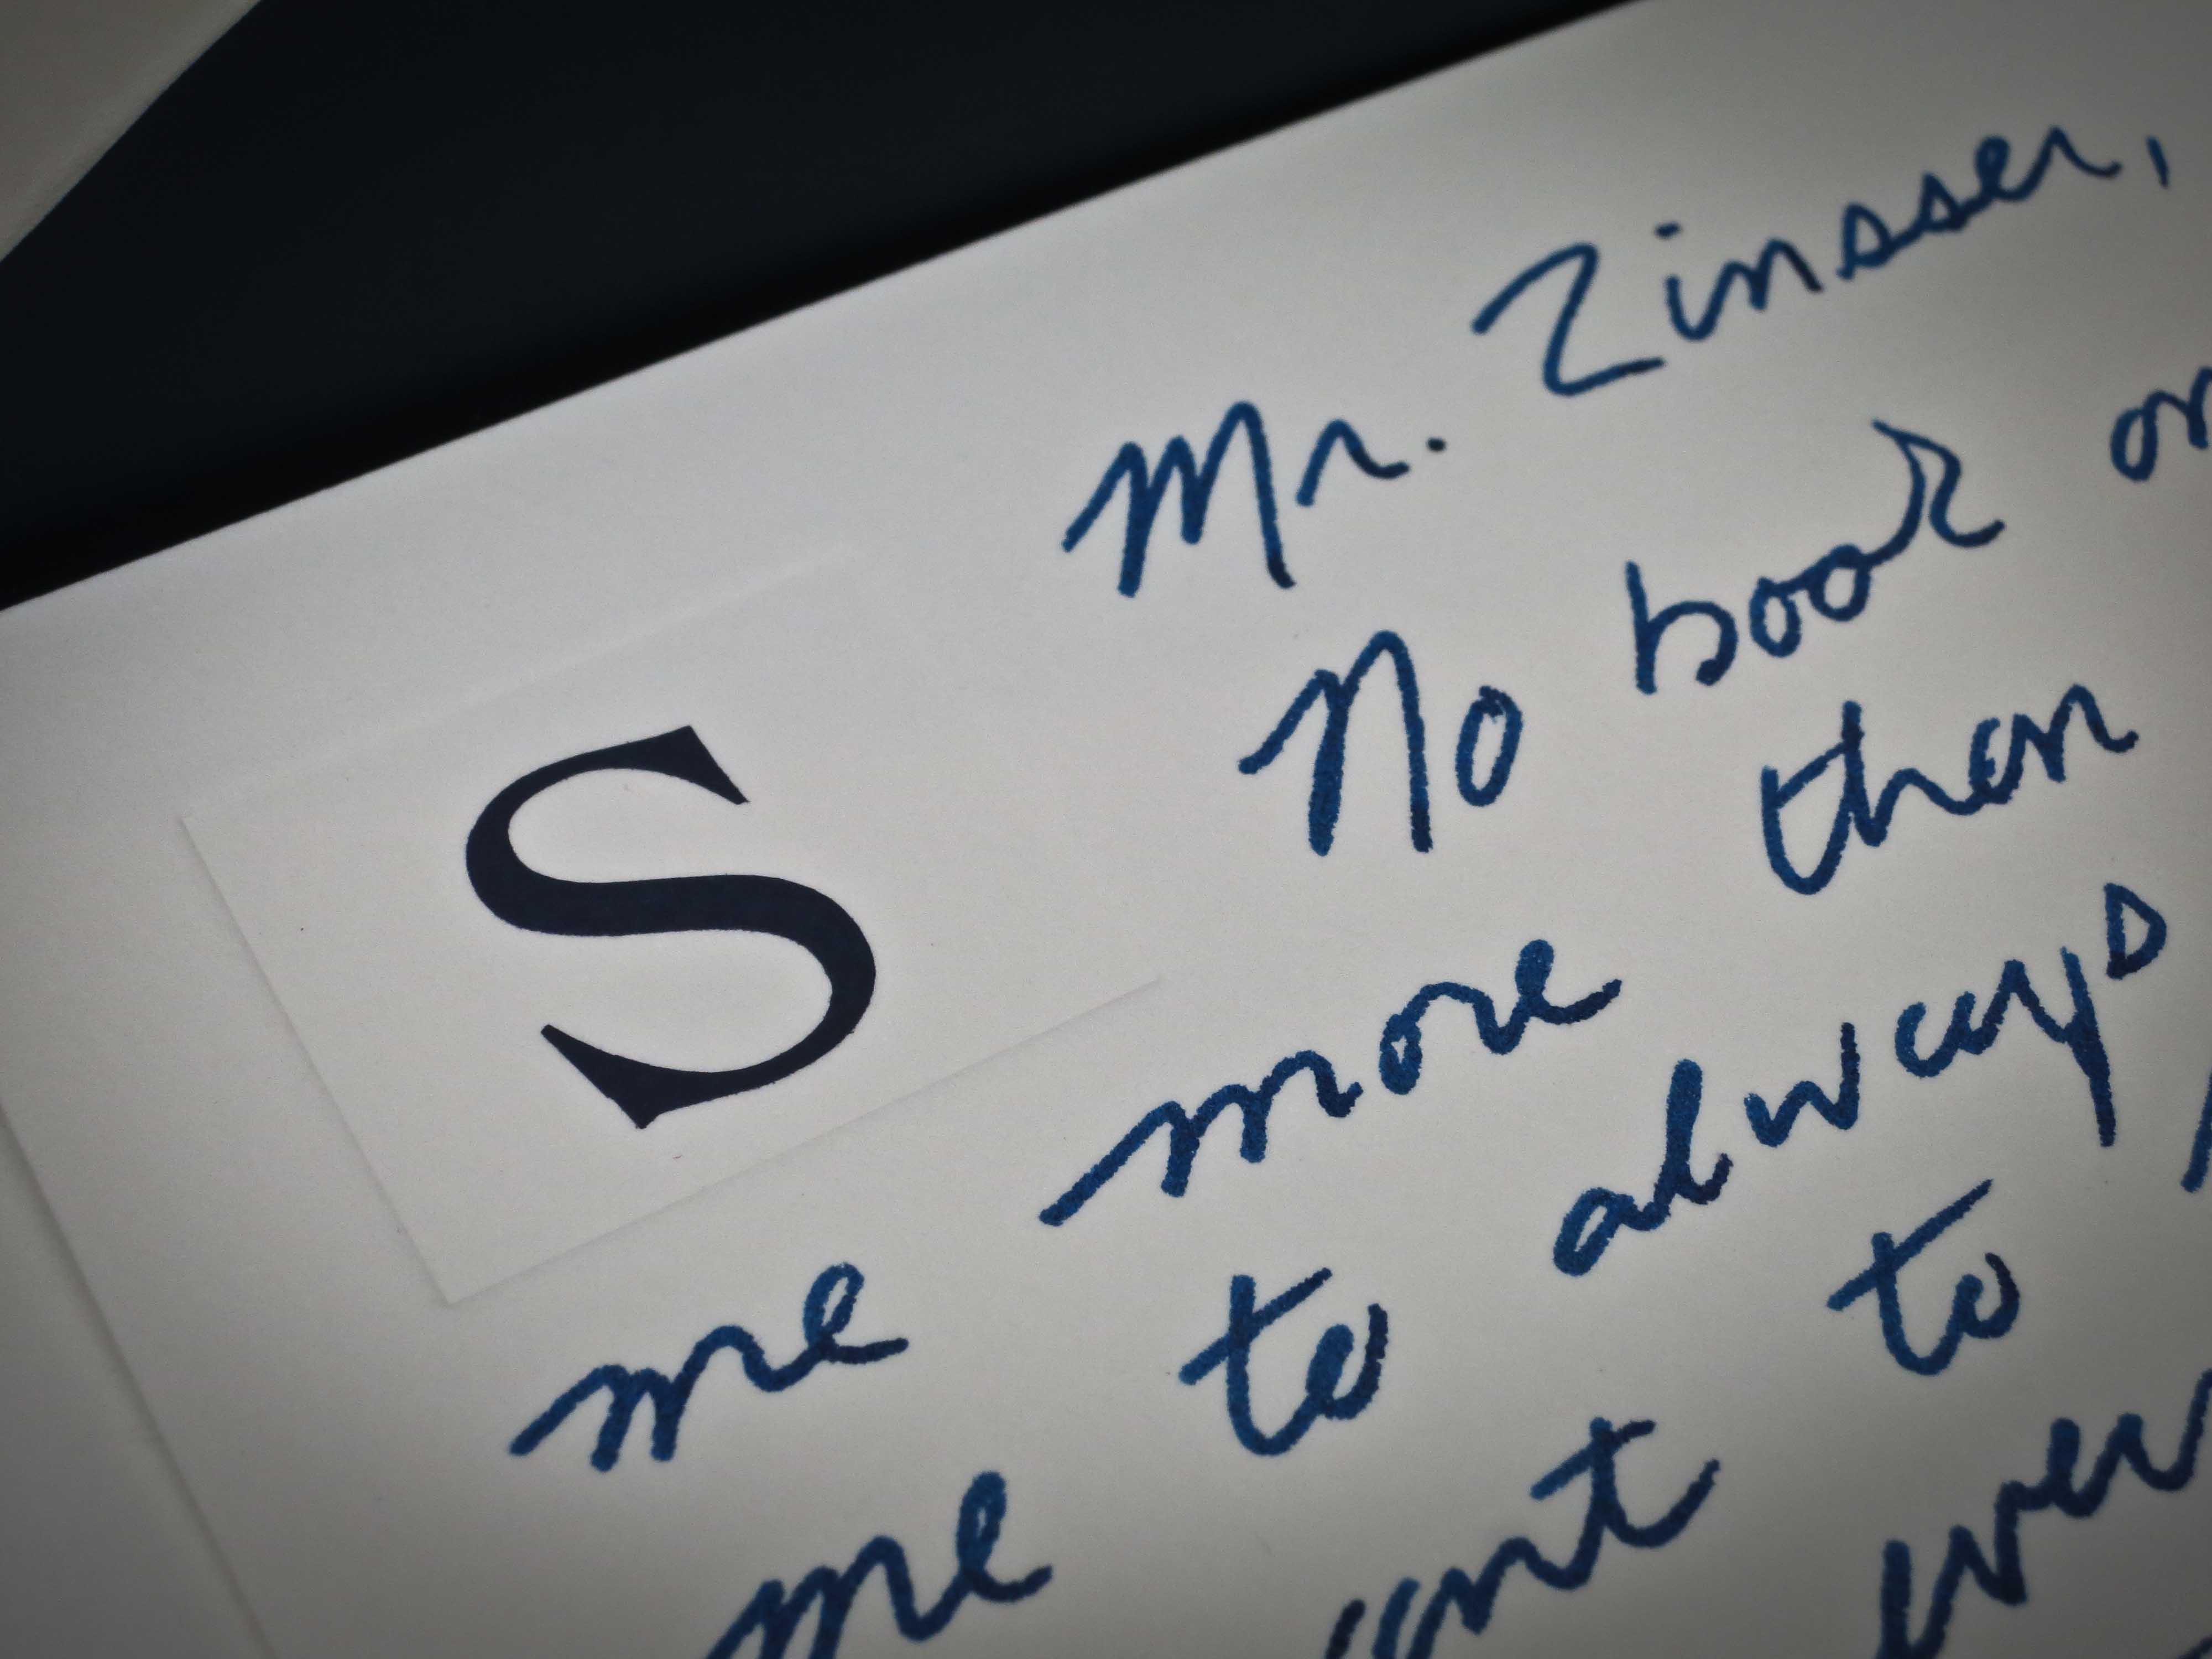 S
Mr. Zinsser,
No book on
me more than
me to always
want to